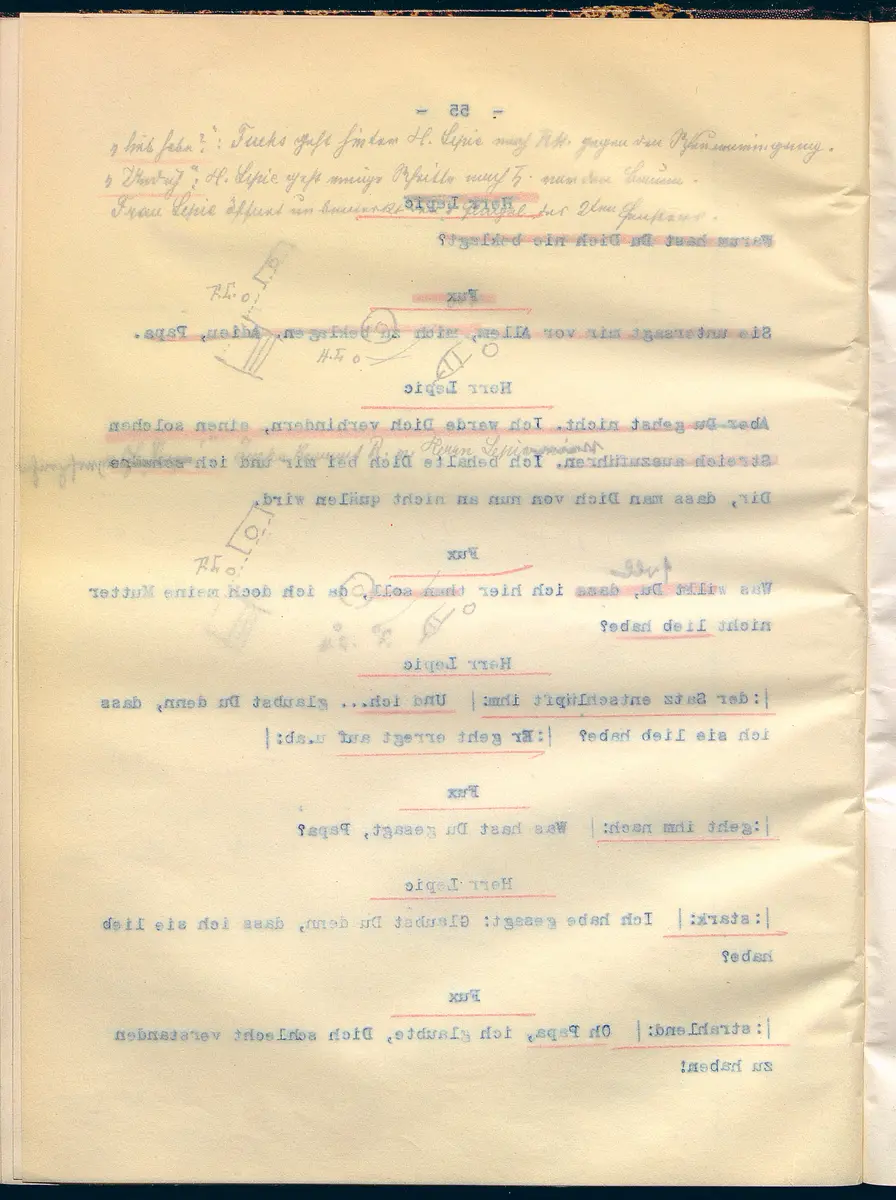 „lieb habe?“: Fuchs geht hinter H. Lepic nach Rt. gegen den Scheuneneingang.
„ “: H. Lepic geht einige Schritte nach L. vor den Baum.
Frau Lepic öffnet unbemerkt Flügel des 2ten Fensters.
- 55 -
Herr Lepic
Warum hast Du Dich nie beklagt?
Fux
Sie untersagt mir vor Allem, mich zu beklagen. Adieu, Papa.
F.L.
H.L.
Herr Lepic
Aber Du gehst nicht. Ich werde Dich verhindern, einen solchen
Streich auszuführen. Ich behalte Dich bei mir und ich schwöre
kommt R. Herrn Lepic
Dir, dass man Dich von nun an nicht quälen wird.
Fux
F.L.
soll
Was willst Du, dass ich hier thun soll, da ich doch meine Mutter
nicht lieb habe?
Herr Lepic
|:der Satz entschlüpft ihm:| Und ich... glaubst Du denn, dass
ich sie lieb habe? |:Er geht erregt auf u.ab:|
Fux
|:geht ihm nach:| Was hast Du gesagt, Papa?
Herr Lepic
|:stark:| Ich habe gesagt: Glaubst Du denn, dass ich sie lieb
habe?
Fux
|:strahlend:| Oh Papa, ich glaubte, Dich schlecht verstanden
zu haben!